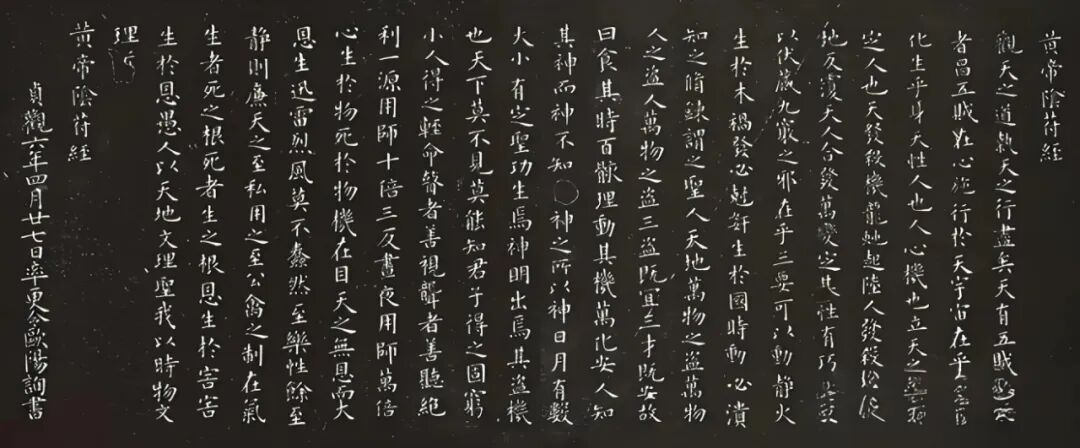 黃帝陰符經
觀天之道執天之行盡矣天有五賊
者昌五賊在心施行於天宇宙在乎
化生乎身天性人也人心機也立天之
定人也天發殺機龍虵起陸人發殺
地反覆天人合發萬變定基性有巧
以伏藏九竅之邪在乎三要可以動静火
生於木禍發必尅奸生於國時動必潰
知之脩鍊謂之聖人天地萬物之盜萬物
人之盜人萬物之盜三盜既宜三才既安故
曰食其時百骸理動其機萬化安人知
其神而神不知神之所以神日月有數
大小有定聖功生焉神明出焉其盜機
也天下莫不見莫能知君子得之固窮
小人得之輕命瞽者善視聾者善聽絶
利一源用師十倍三反晝夜用師萬倍
心生於物死於物機在目天之無恩而大
恩生迅雷烈風莫不蠢然至樂性餘至
静則廉天之至私用之至公禽之制在氣
生者死之根死者生之根恩生於害害
生於恩愚人以天地文理聖我以時物文
理
黃帝陰符經
貞觀六年四月廿七日率更令歐陽詢書